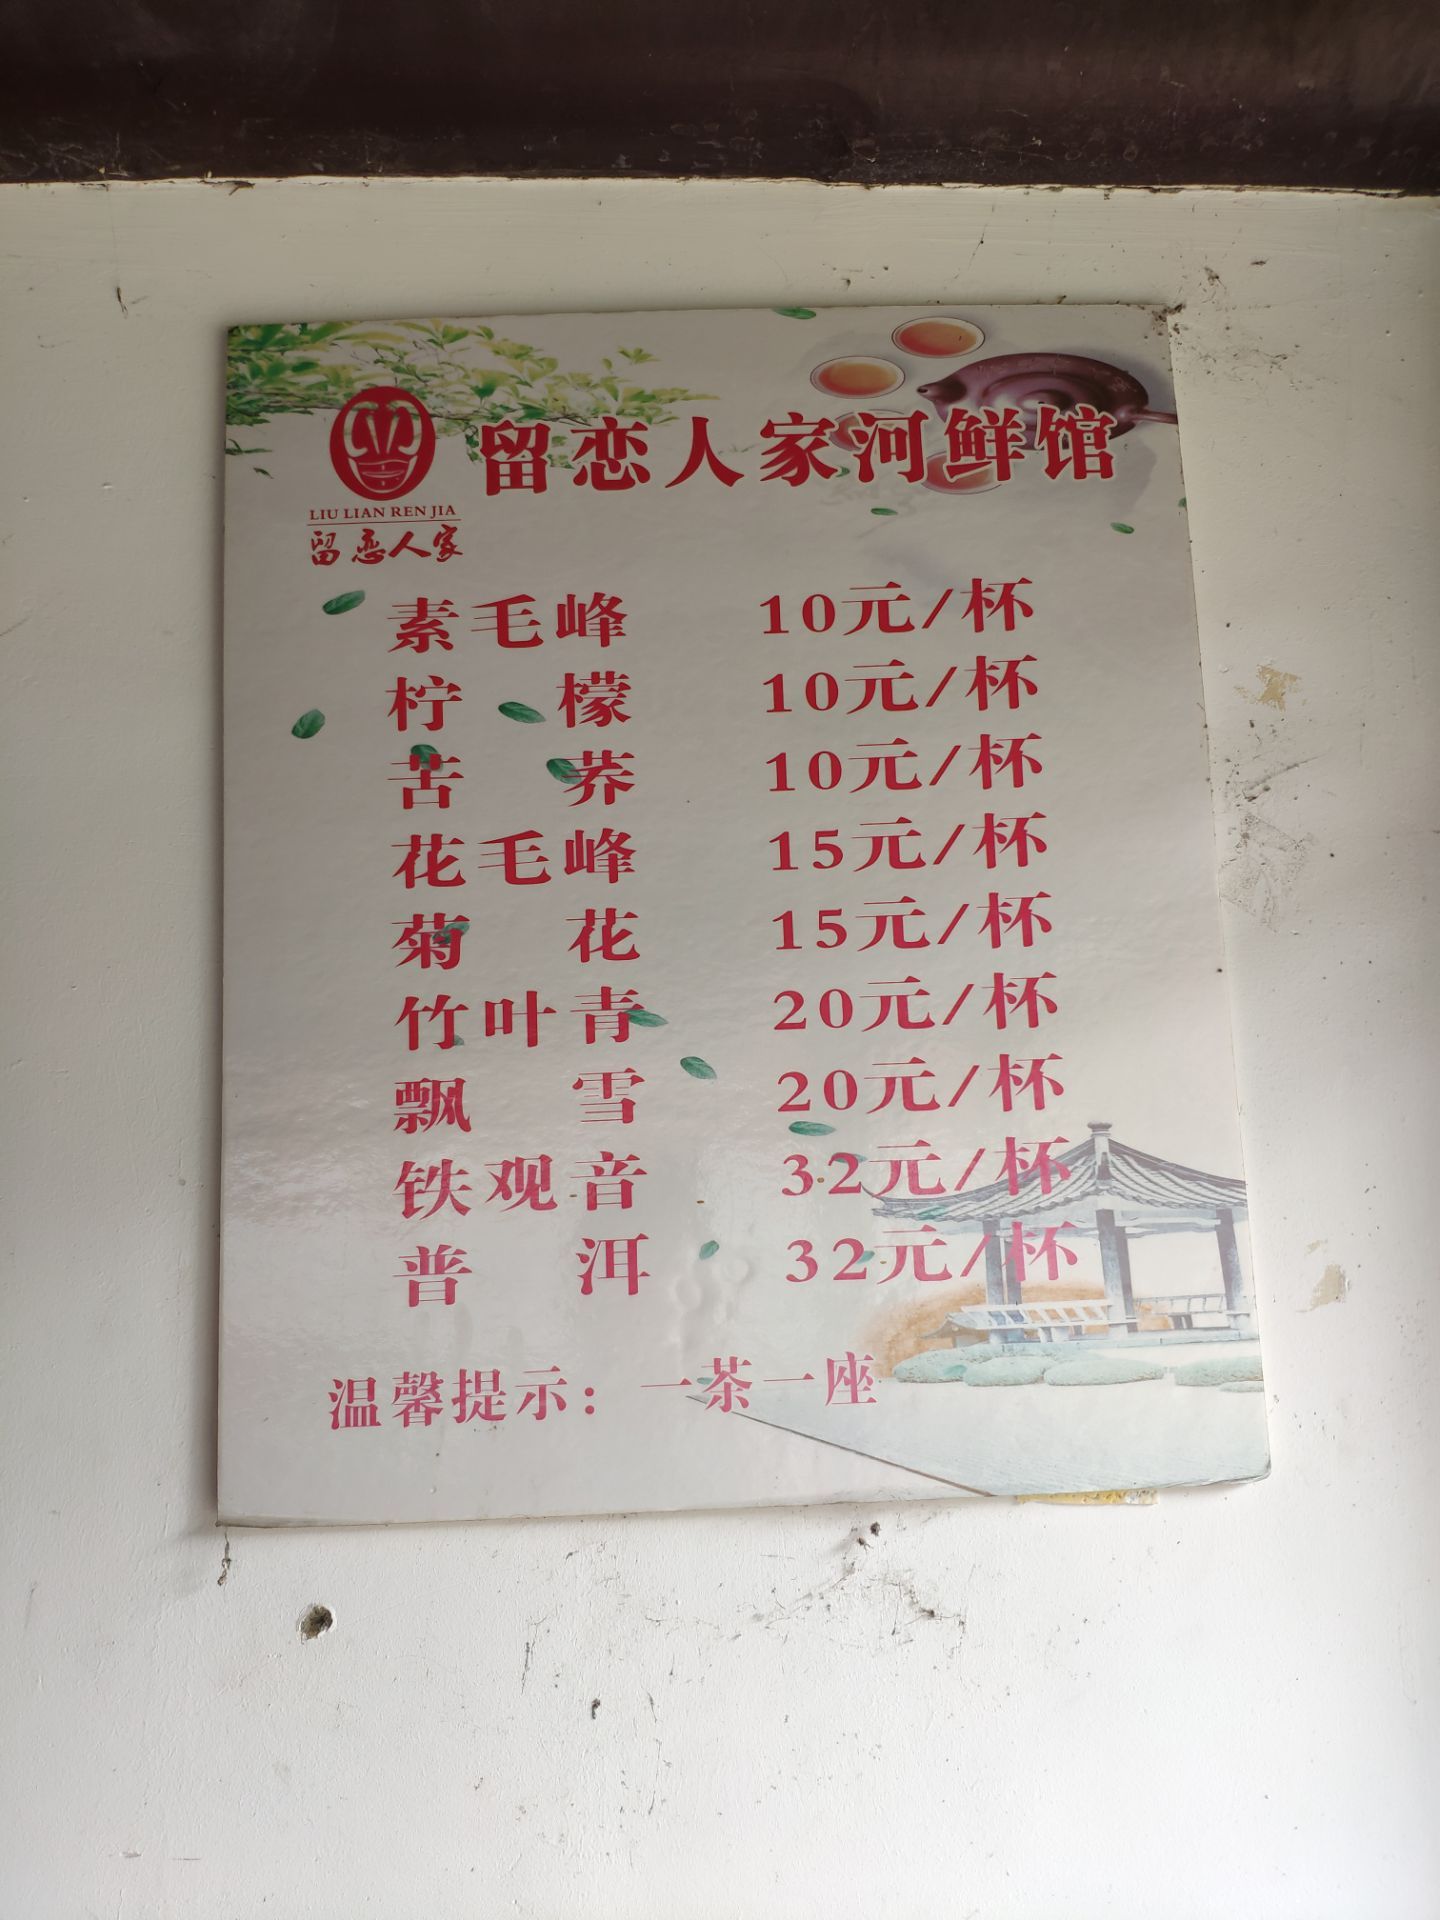 留恋人家河鲜馆
LIU LIAN REN JIA
留恋人家
素毛峰 10元/杯
柠檬 10元/杯
苦荞 10元/杯
花毛峰 15元/杯
菊花 15元/杯
竹叶青 20元/杯
飘雪 20元/杯
铁观音 32元/杯
普洱 32元/杯
温馨提示：一茶一座